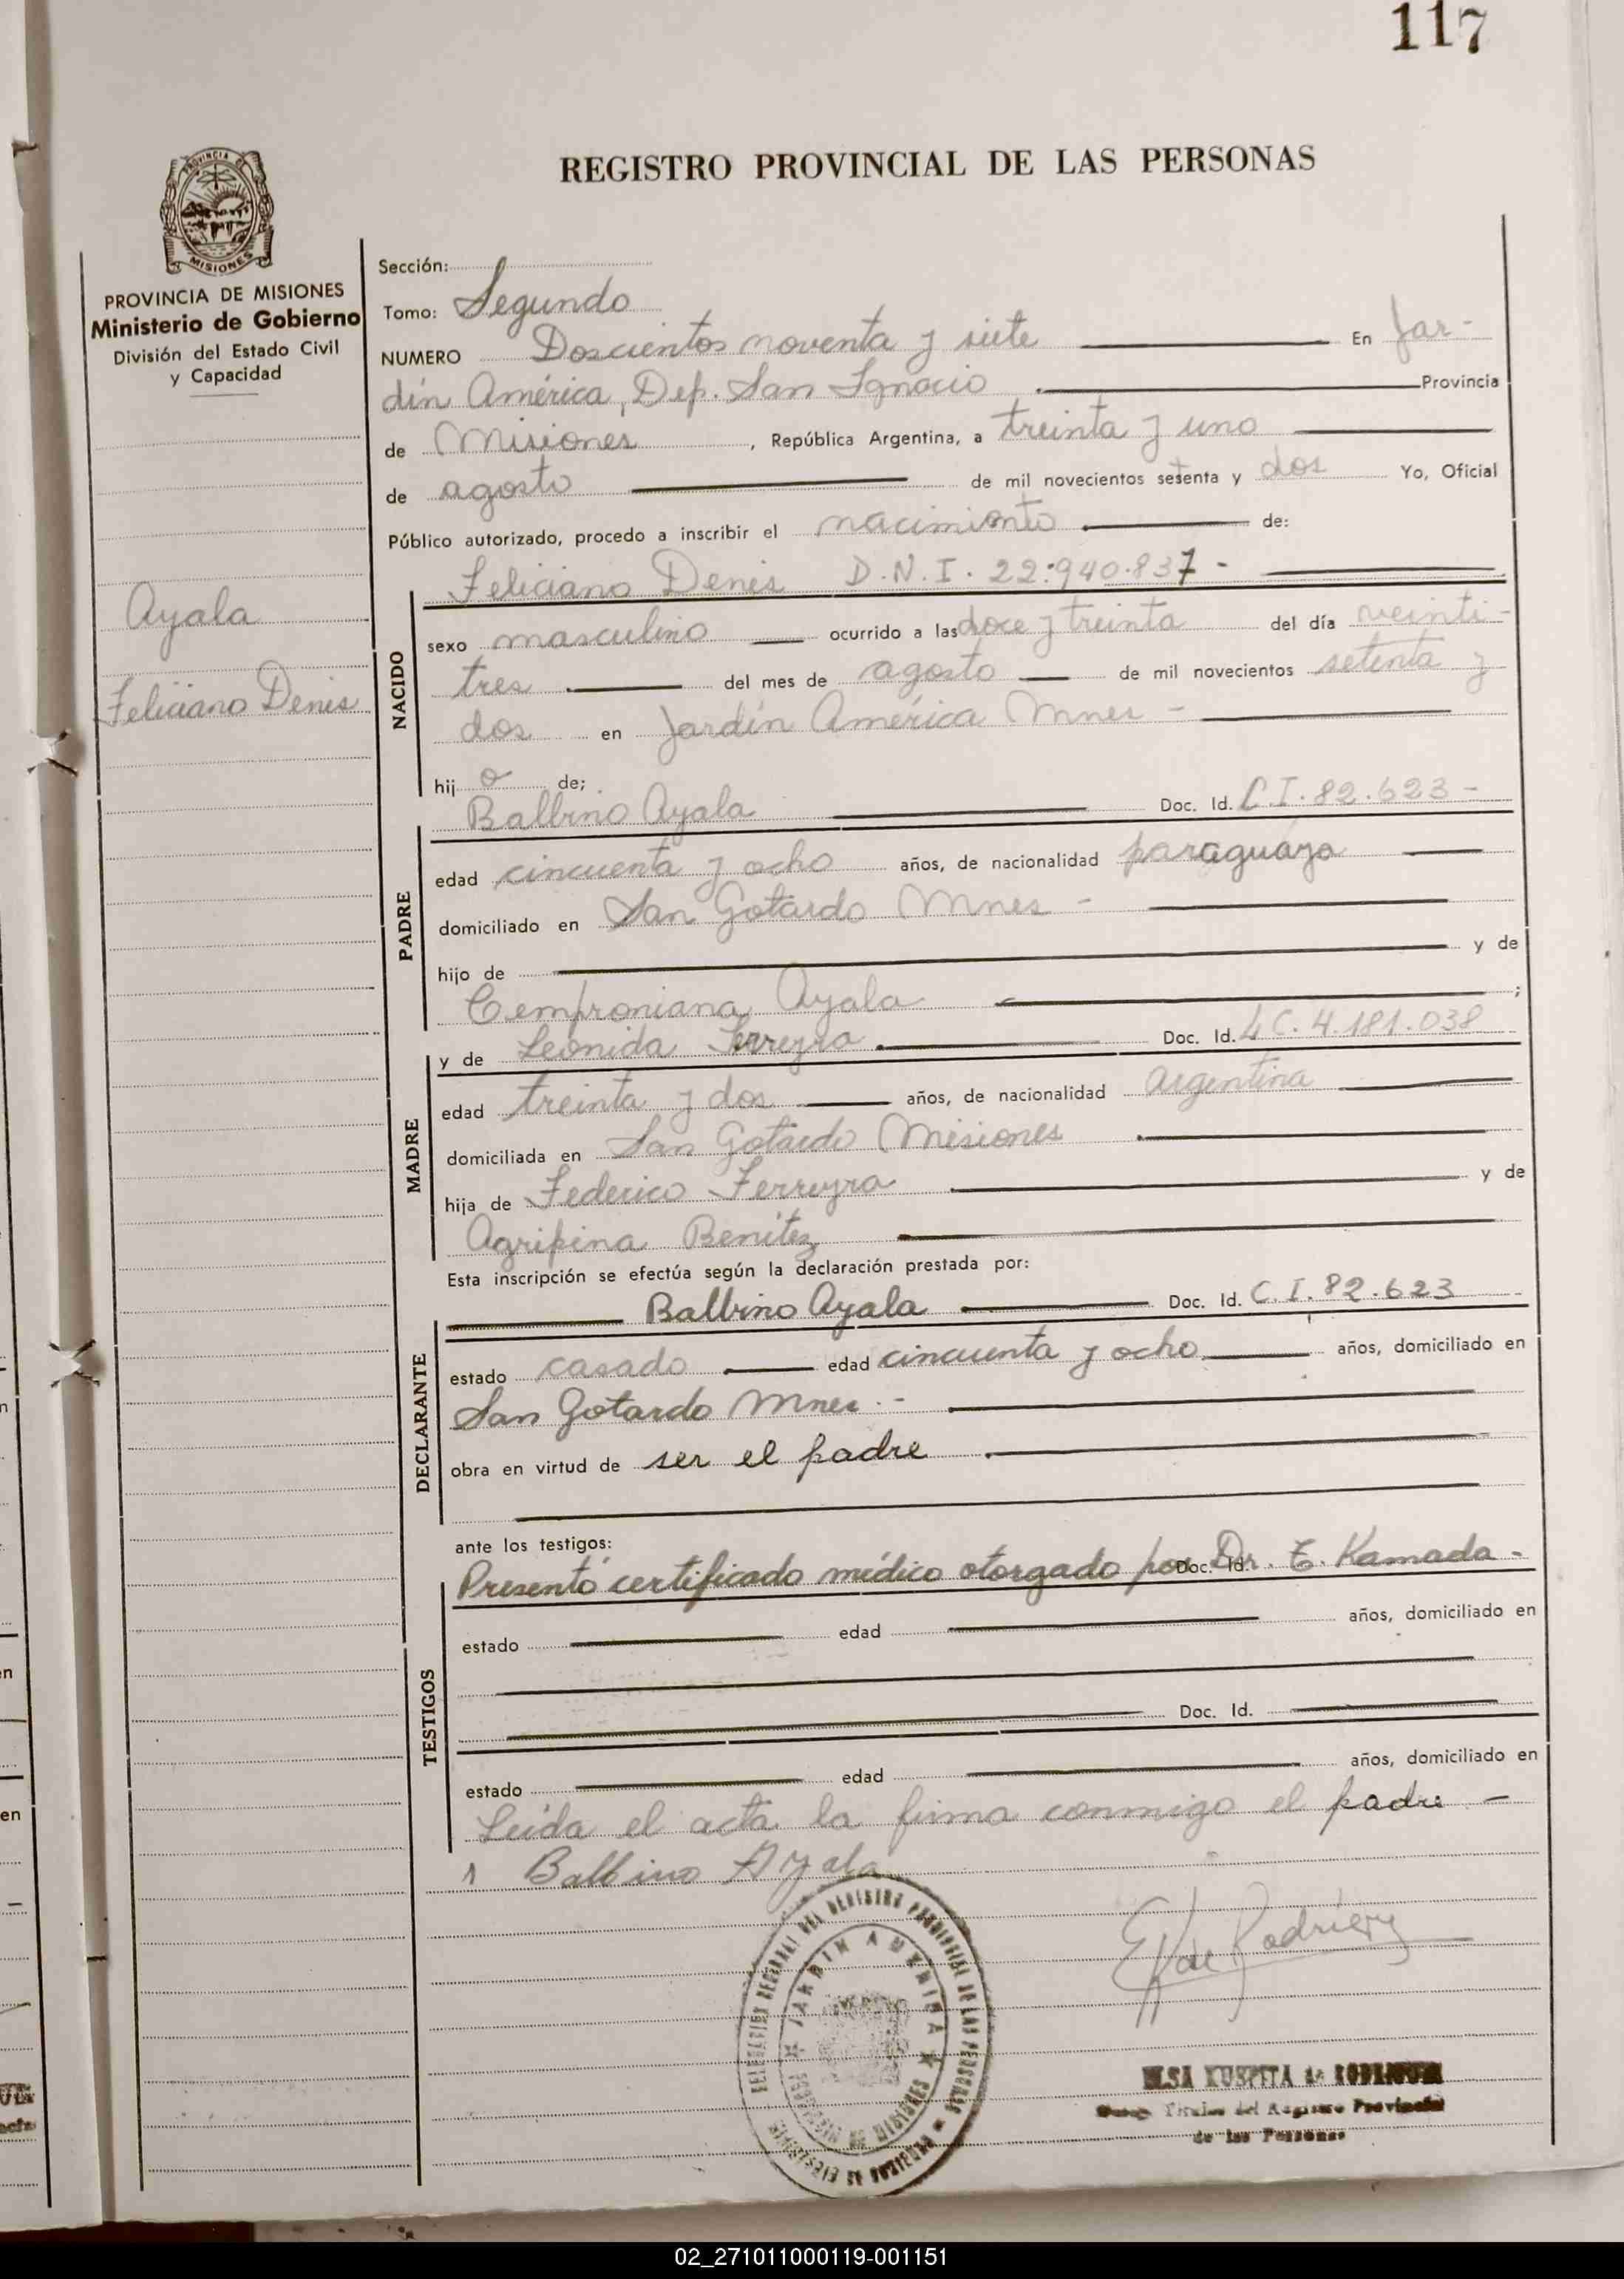 117
REGISTRO PROVINCIAL DE LAS PERSONAS
PROVINCIA DE
MISIONES
PROVINCIA DE MISIONES
Ministerio de Gobierno
División del Estado Civil
y Capacidad
Ayala
Feliciano Denis
Sección:
Tomo: Segundo
NUMERO Doscientos noventa y siete En Jar-
dín América, Dep. San Ignacio Provincia
de Misiones, República Argentina, a treinta y uno
de agosto de mil novecientos setenta y dos Yo, Oficial
Público autorizado, procedo a inscribir el nacimiento de:
Feliciano Denis D.N.I. 22.940.837 -
NACIDO
sexo masculino ocurrido a las doce y treinta del día veinti-
tres del mes de agosto de mil novecientos setenta y
dos en Jardín América Mnes -
hij o de;
Balbino Ayala Doc. Id. C.I. 82.623 -
PADRE
edad cincuenta y ocho años, de nacionalidad paraguaya
domiciliado en San Gotardo Mnes -
hijo de y de
Cemproniana Ayala ;
y de Leonida Ferreyra Doc. Id. LC. 4.181.038
MADRE
edad treinta y dos años, de nacionalidad argentina
domiciliada en San Gotardo Misiones
hija de Federico Ferreyra y de
Agripina Benítez
Esta inscripción se efectúa según la declaración prestada por:
Balbino Ayala Doc. Id. C.I. 82.623
DECLARANTE
estado casado edad cincuenta y ocho años, domiciliado en
San Gotardo Mnes. -
obra en virtud de ser el padre
ante los testigos:
Presentó certificado médico otorgado por Doc. Id. Dr. E. Kamada -
TESTIGOS
estado edad años, domiciliado en
Doc. Id.
estado edad años, domiciliado en
Leída el acta la firma conmigo el padre -
Balbino Ayala
EK de Rodríguez
JARDIN AMERICA
ELSA KUSPITA de RODRIGUEZ
Titular del Registro Provincial
de las Personas
02_271011000119-001151